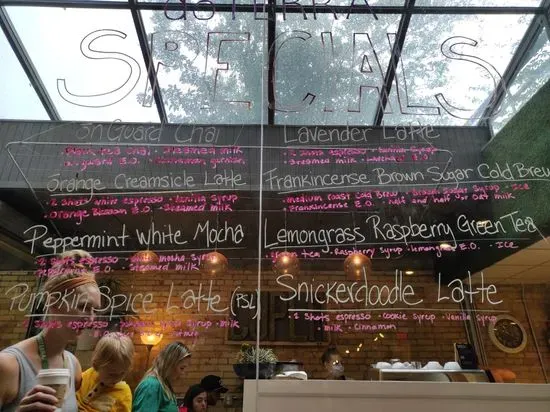 doTERRA
SPECIALS
On Guard Chai
steamed milk
On guard E.O. • Cinnamon garnish
Lavender Latte
2 shots espresso • Vanilla syrup
• Steamed milk • Lavender E.O.
Orange Creamsicle Latte
• 2 Shots white espresso • Vanilla syrup
• Orange Blossom E.O. • Steamed milk
Frankincense Brown Sugar Cold Brew
• Medium roast cold brew • Brown Sugar Syrup • Ice
• Frankincense E.O. • half and half or oat milk
Peppermint White Mocha
• 2 Shots espresso • white mocha Syrup
Peppermint E.O. • Steamed milk
Lemongrass Raspberry Green Tea
Green tea • Raspberry syrup • lemongrass E.O. • Ice
Pumpkin Spice Latte (PSL)
• 2 shots espresso • pumpkin spice syrup • milk
Snickerdoodle Latte
• 2 Shots espresso • Cookie syrup • Vanilla syrup
• milk • Cinnamon